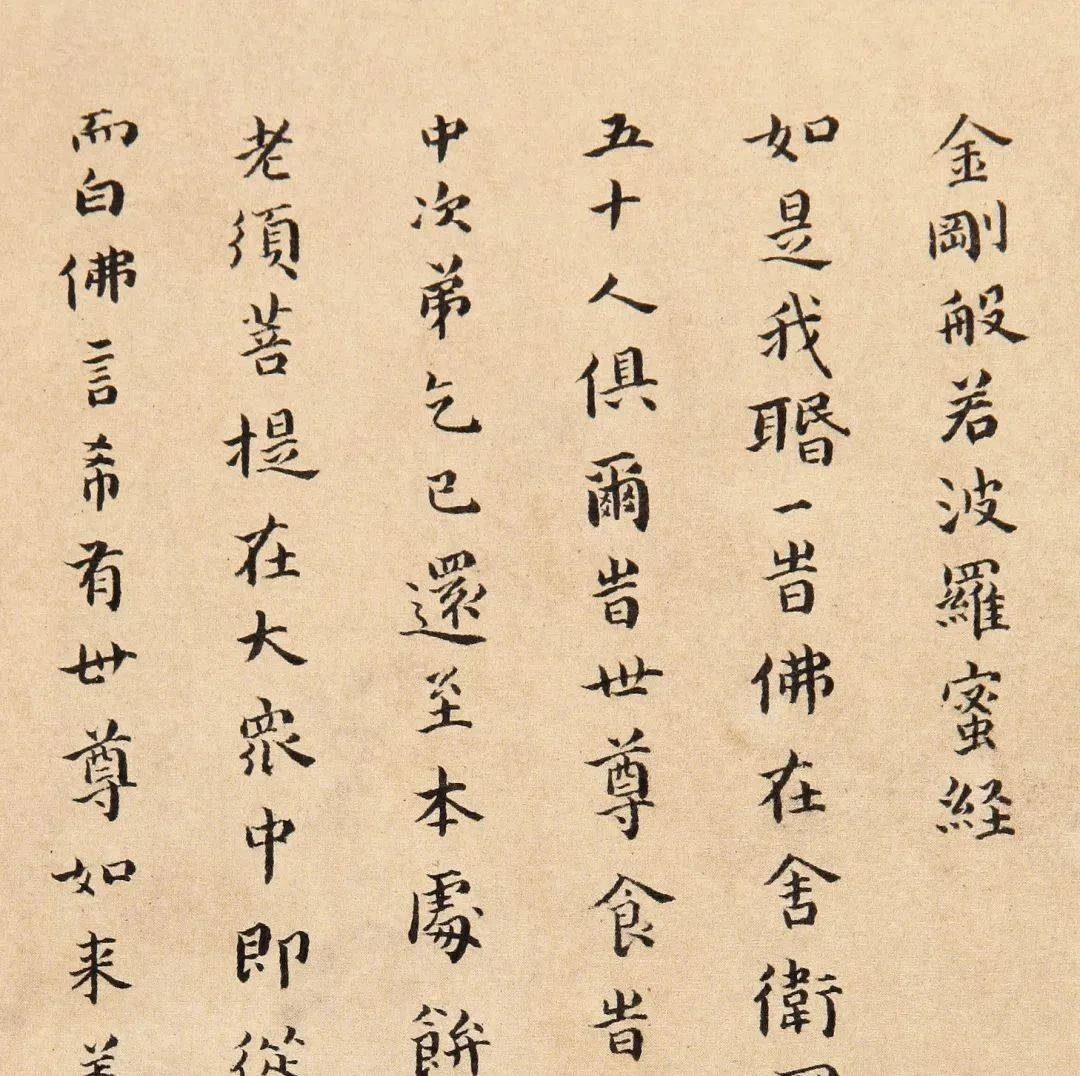 金剛般若波羅蜜経
如是我䎽一旹佛在舍衛
五十人俱爾旹世尊食旹
中次弟乞已還至本處餅
老須菩提在大眾中即從
而白佛言希有世尊如来